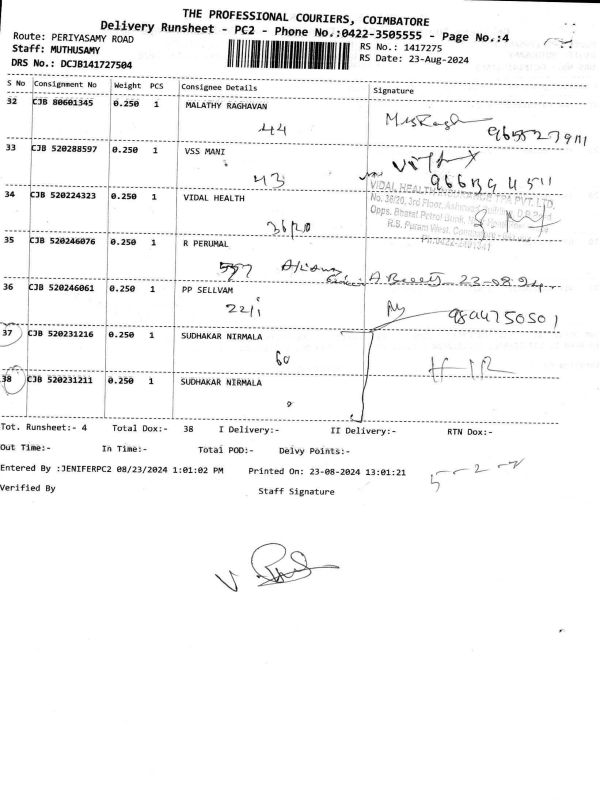 THE PROFESSIONAL COURIERS, COIMBATORE
Delivery Runsheet - PC2 - Phone No.:0422-3505555 - Page No.:4
Route: PERIYASAMY ROAD
RS No.: 1417275
Staff: MUTHUSAMY
RS Date: 23-Aug-2024
DRS No.: DCJB141727504
S No Consignment No Weight PCS Consignee Details Signature
32 CJB 80601345 0.250 1 MALATHY RAGHAVAN
44
33 CJB 520288597 0.250 1 VSS MANI
43
34 CJB 520224323 0.250 1 VIDAL HEALTH
VIDAL HEALTH TPA PVT. LTD.
No. 36/20, 3rd Floor,
Opps. Bharat Petrol Bunk,
R.B. Puram West,
36/20
35 CJB 520246076 0.250 1 R PERUMAL
23-08-24
36 CJB 520246061 0.250 1 PP SELLVAM
22/1
9844750501
37 CJB 520231216 0.250 1 SUDHAKAR NIRMALA
60
38 CJB 520231211 0.250 1 SUDHAKAR NIRMALA
Tot. Runsheet:- 4 Total Dox:- 38 I Delivery:- II Delivery:- RTN Dox:-
Out Time:- In Time:- Total POD:- Delvy Points:-
Entered By :JENIFERPC2 08/23/2024 1:01:02 PM Printed On: 23-08-2024 13:01:21
Verified By Staff Signature